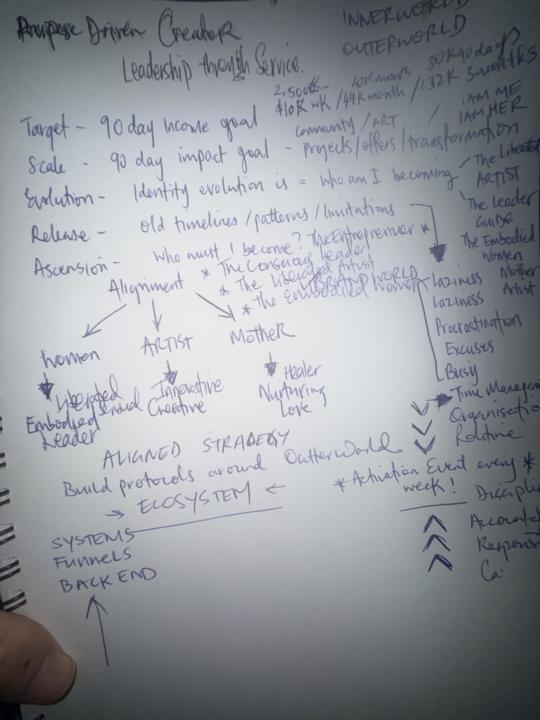 Purpose Driven Creator
INNERWORLD
OUTERWORLD
Leadership through Service.
$10K WK / 44K month / 132K 3 months
Target - 90 day Income goal
community / ART
I AM ME
I AM HER
Scale - 90 day impact goal - projects/offers/transformation
Evolution - Identity evolution is = who am I becoming
The Liberated
ARTIST
The Leader
GUIDE
The Embodied
Women
Mother
Artist
Release - old timelines/patterns/limitations
Ascension - who must I become? The Entrepreneur *
* The Conscious Leader
* The Liberated Artist
* The Embodied Women
Alignment
Women
ARTIST
MOTHER
Liberated
Embodied
Leader
Innovative
Creative
Healer
Nurturing
Love
Laziness
Laziness
Procrastination
Excuses
Busy
Time Managem
Organisatio
Routine
ALIGNED STRADEGY
Build protocols around OutterWorld
→ ECOSYSTEM ←
* Activation Event every *
week!
Discipli
Accountab
Respons
Ca
SYSTEMS
Funnels
BACK END